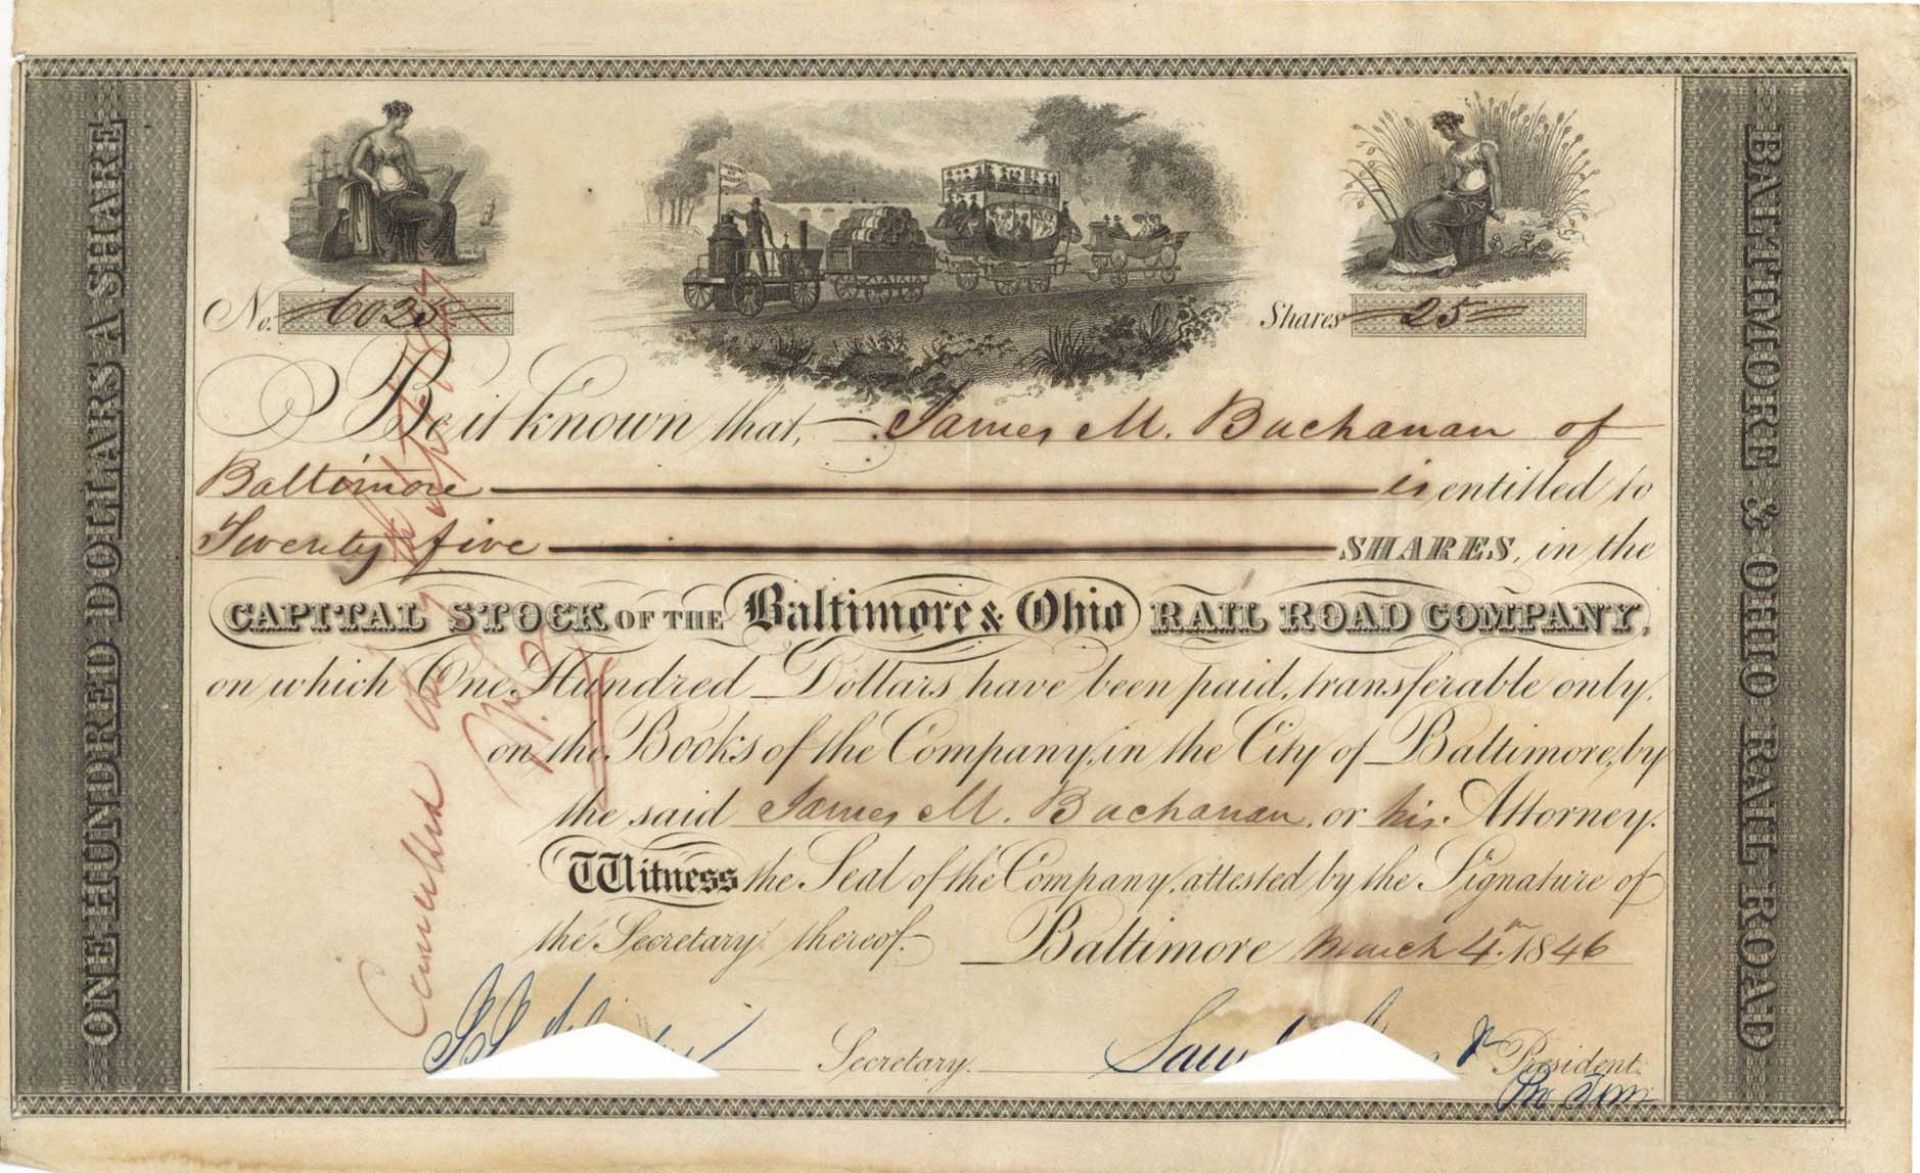 ONE HUNDRED DOLLARS A SHARE
No. 6025
Shares 25
Be it known that, James M. Buchanan of
Baltimore is entitled to
Twenty five SHARES, in the
CAPITAL STOCK OF THE Baltimore & Ohio RAIL ROAD COMPANY,
on which One Hundred Dollars have been paid, transferable only,
on the Books of the Company, in the City of Baltimore, by
the said James M. Buchanan, or his Attorney.
Witness the Seal of the Company, attested by the Signature of
the Secretary thereof. Baltimore March 4th 1846
Secretary.
President.
Pro Tem
Cancelled
BALTIMORE & OHIO RAIL ROAD